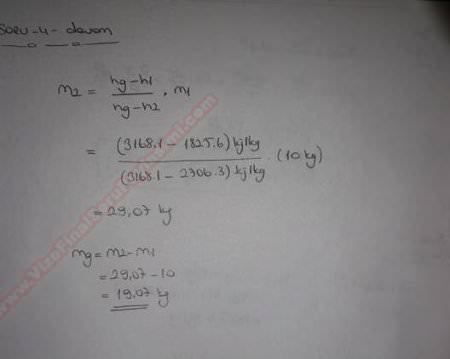 SORU-4- devam
m2 = hg-h1 / hg-h2 . m1
= (3168.1 - 1825.6) kj/kg / (3168.1 - 2706.3) kj/kg . (10 kg)
= 29,07 kg
mg = m2-m1
= 29,07 - 10
= 19,07 kg
www.VizeFinalSorulari